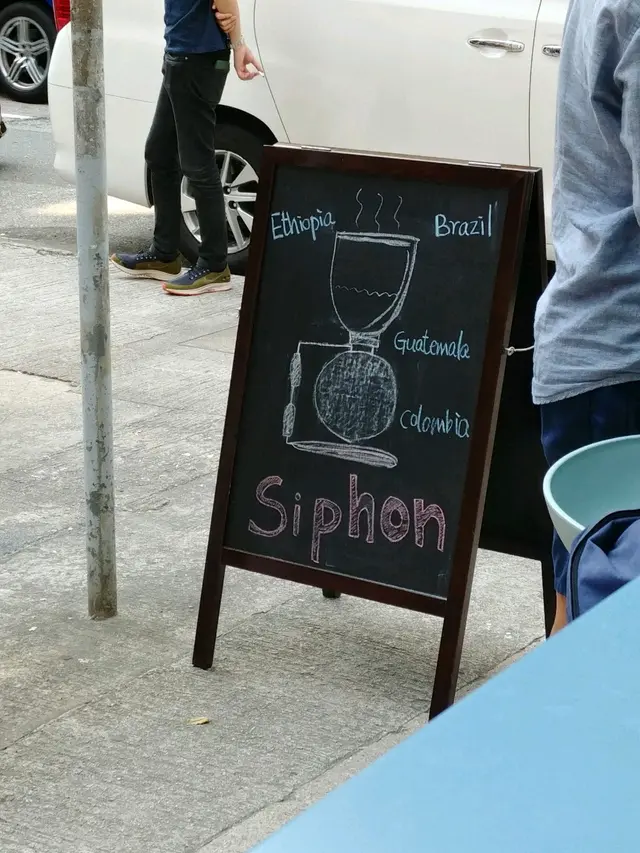 Ethiopia
Brazil
Guatemala
Colombia
Siphon